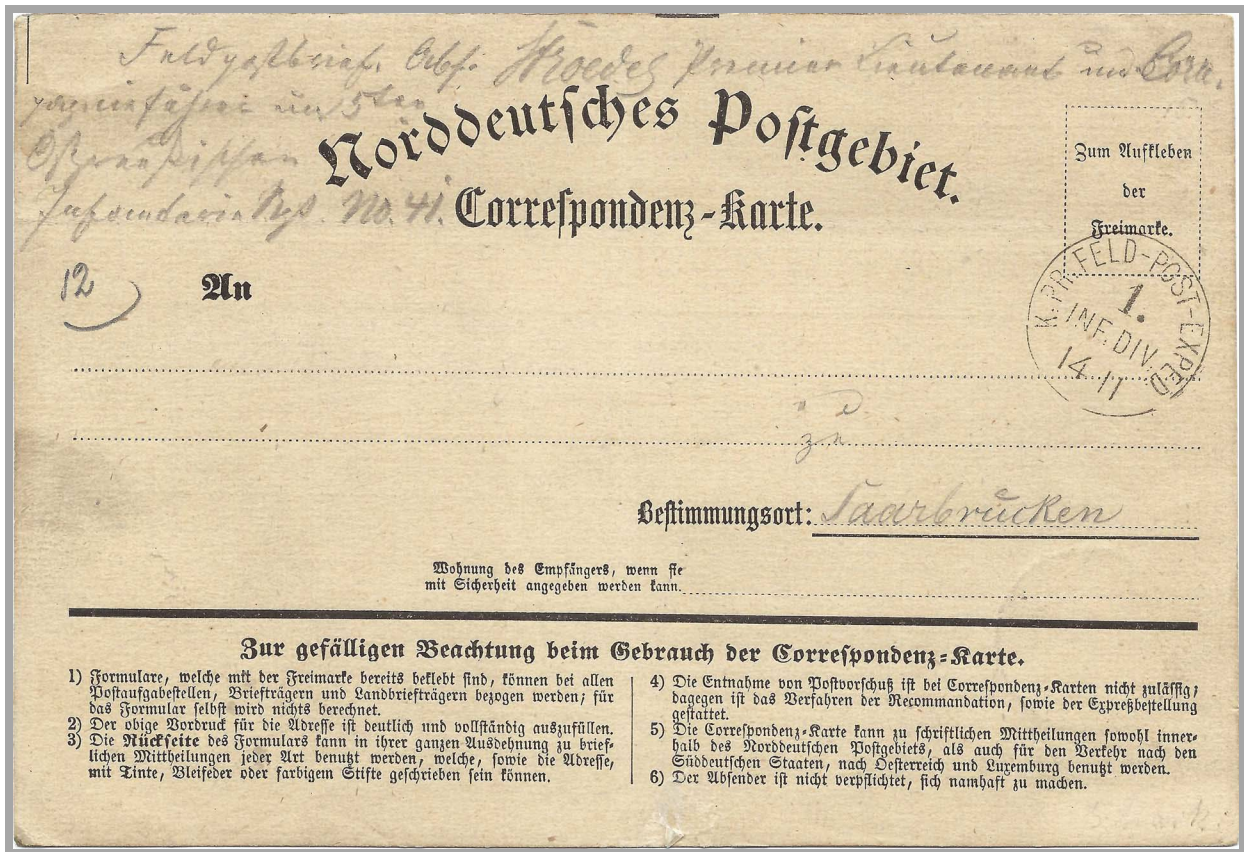 Feldpostbrief. Abs. Premier Lieutenant und Com-
pagnieführer im 5ten
Ostpreußischen
Infanterie Rgt. No. 41.
Norddeutsches Postgebiet.
Correspondenz-Karte.
Zum Aufkleben
der
Freimarke.
12
An
K. PR. FELD-POST-EXPED
1.
INF. DIV.
14 11
zu
Bestimmungsort: Saarbrücken
Wohnung des Empfängers, wenn sie
mit Sicherheit angegeben werden kann.
Zur gefälligen Beachtung beim Gebrauch der Correspondenz-Karte.
1) Formulare, welche mit der Freimarke bereits beklebt sind, können bei allen
Postaufgabestellen, Briefträgern und Landbriefträgern bezogen werden; für
das Formular selbst wird nichts berechnet.
2) Der obige Vordruck für die Adresse ist deutlich und vollständig auszufüllen.
3) Die Rückseite des Formulars kann in ihrer ganzen Ausdehnung zu brief-
lichen Mittheilungen jeder Art benutzt werden, welche, sowie die Adresse,
mit Tinte, Bleifeder oder farbigem Stifte geschrieben sein können.
4) Die Entnahme von Postvorschuß ist bei Correspondenz-Karten nicht zulässig;
dagegen ist das Verfahren der Recommandation, sowie der Expreßbestellung
gestattet.
5) Die Correspondenz-Karte kann zu schriftlichen Mittheilungen sowohl inner-
halb des Norddeutschen Postgebiets, als auch für den Verkehr nach den
Süddeutschen Staaten, nach Oesterreich und Luxemburg benutzt werden.
6) Der Absender ist nicht verpflichtet, sich namhaft zu machen.